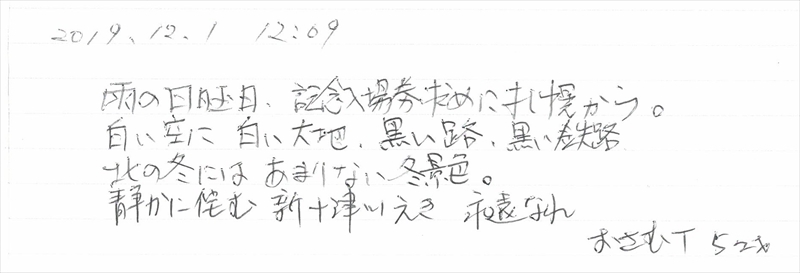 2019.12.1 12:09
雨の日曜日、記念入場券求めに札幌から。
白い空に 白い大地、黒い路、黒い鉄路
北の冬には あまりない冬景色。
静かに佇む 新十津川えき 永遠なれ
おさむT 52才